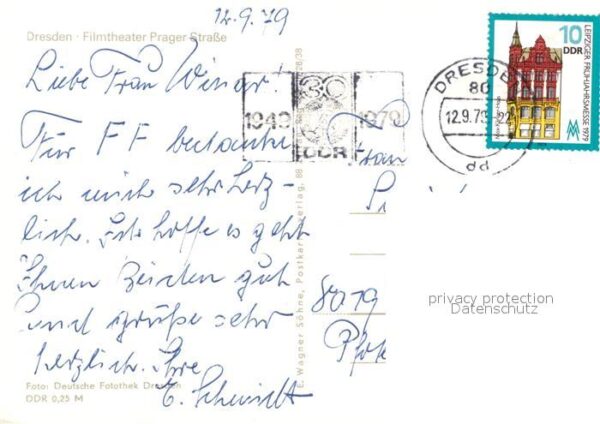 12.9.79
Dresden · Filmtheater Prager Straße
Liebe Frau
Für FF bedanke
ich mich sehr herz-
lich. Ich hoffe es geht
Ihnen beiden gut
und grüße sehr
herzlich. Ihre
E. Schmidt
Foto: Deutsche Fotothek Dresden
DDR 0,25 M
E. Wagner Söhne, Postkartenverlag, 88
1949 30 1979
DDR
DRESDEN
80
12.9.79-22
dd
10
DDR
LEIPZIGER FRÜHJAHRSMESSE 1979
Frau
8019
privacy protection
Datenschutz